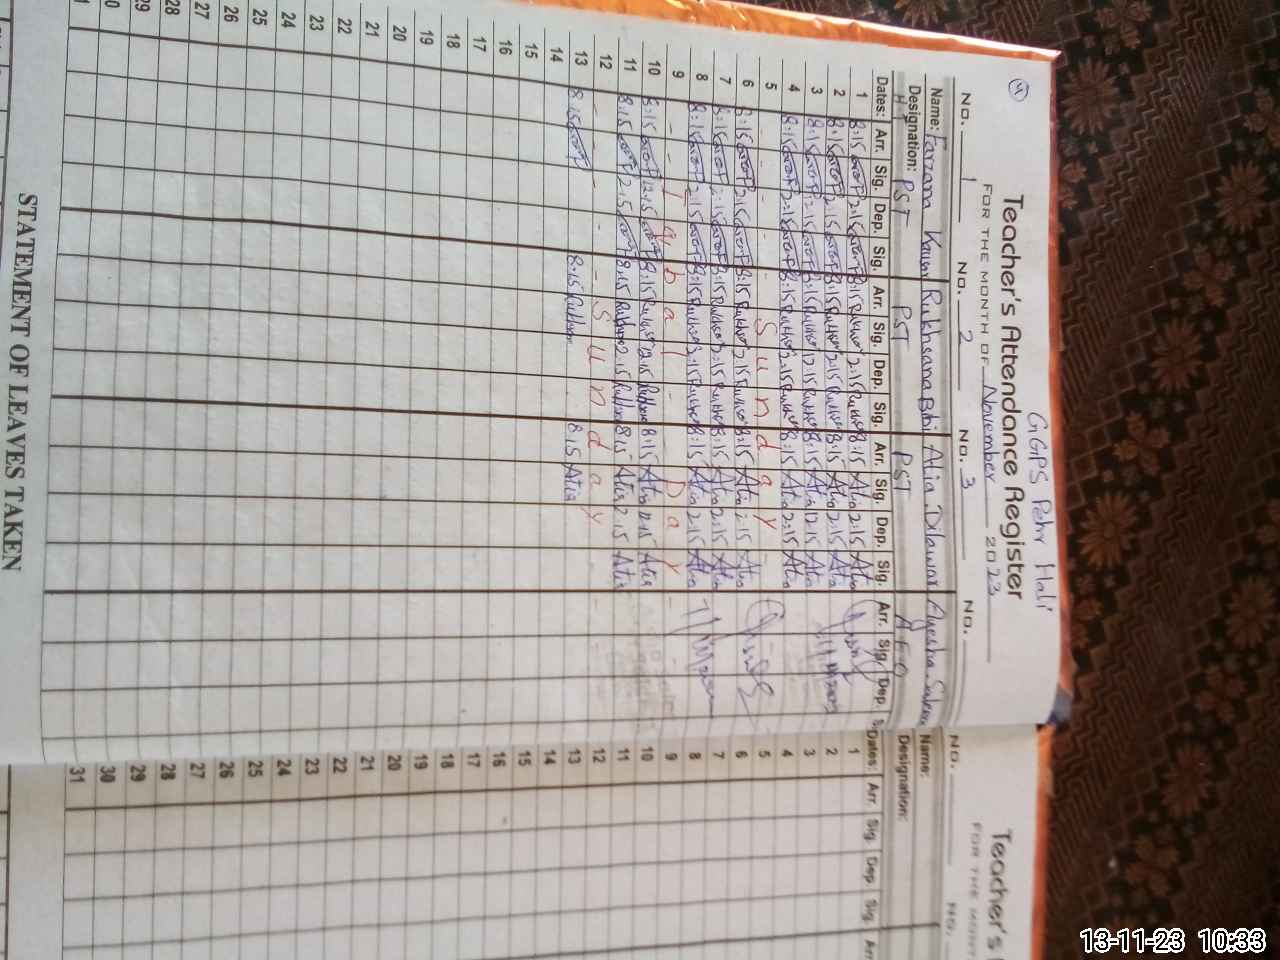 GGPS Pehr Hali
Teacher's Attendance Register
FOR THE MONTH OF November 2023
No. 1 No. 2 No. 3 No.
Name: Farzana Kausar Rukhsana Bibi Atia Dilawar Ayesha
Designation: PST PST PST AEO
Dates: Arr. Sig. Dep. Sig. Arr. Sig. Dep. Sig. Arr. Sig. Dep. Sig. Arr. Sig. Dep. S
1 8:15 2:15 8:15 2:15 8:15 Atia 2:15 Atia
2 8:15 2:15 8:15 2:15 8:15 Atia 2:15 Atia
3 8:15 12:15 8:15 12:15 8:15 Atia 12:15 Atia
4 8:15 2:15 8:15 2:15 8:15 Atia 2:15 Atia
5 - - - - Sunday
6 8:15 2:15 8:15 2:15 8:15 Atia 2:15 Atia
7 8:15 2:15 8:15 2:15 8:15 Atia 2:15 Atia
8 8:15 2:15 8:15 2:15 8:15 Atia 2:15 Atia
9 - - - Iqbal - - Day - -
10 8:15 12:15 8:15 12:15 8:15 Atia 12:15 Atia
11 8:15 2:15 8:15 2:15 8:15 Atia 2:15 Atia
12 - - - - - Sunday - -
13 8:15 8:15 8:15 Atia
14
15
16
17
18
19
20
21
22
23
24
25
26
27
28
29
30
STATEMENT OF LEAVES TAKEN
Teacher's
FOR THE MONT
No. No.
Name:
Designation:
Dates: Arr. Sig. Dep Sig. Arr
1
2
3
4
5
6
7
8
9
10
11
12
13
14
15
16
17
18
19
20
21
22
23
24
25
26
27
28
29
30
31
13-11-23 10:33